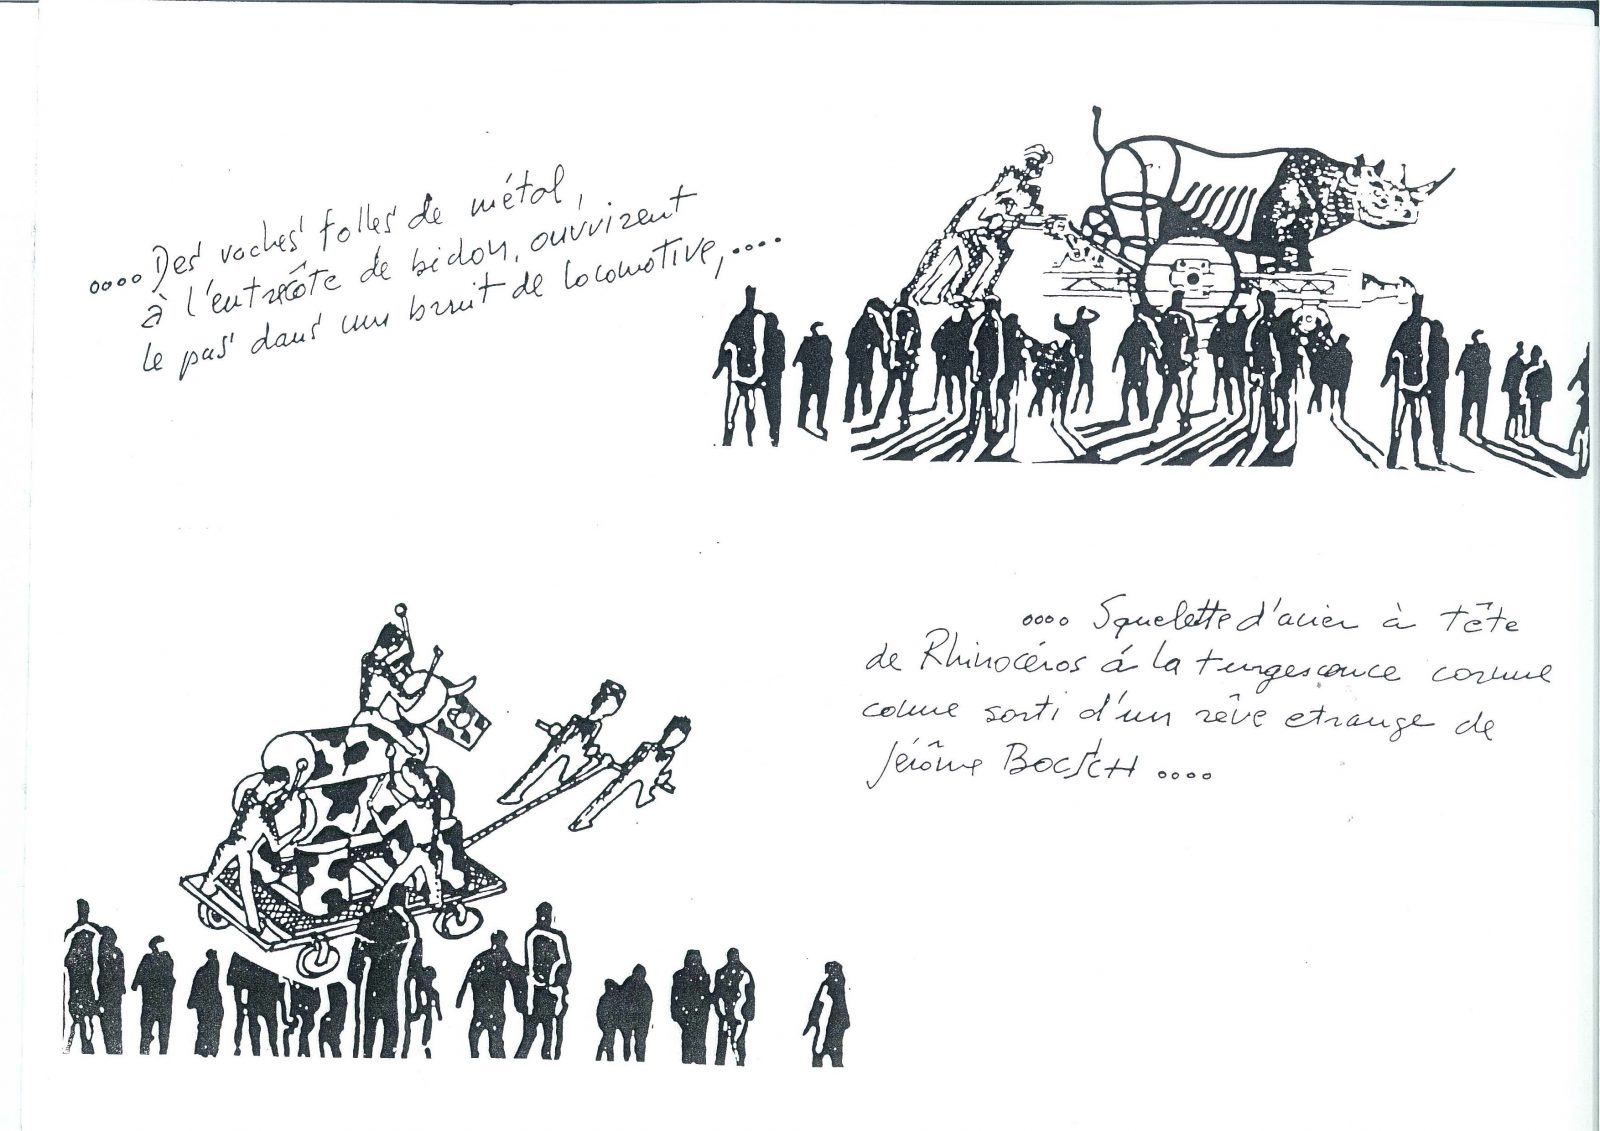 .... Des vaches folles de métal,
à l'entrecôte de bidon, ouvrirent
le pas dans un bruit de locomotive, ....
.... Squelette d'acier à tête
de Rhinocéros à la turgescence cornue
comme sorti d'un rêve etrange de
Jérôme BOCSCH ....